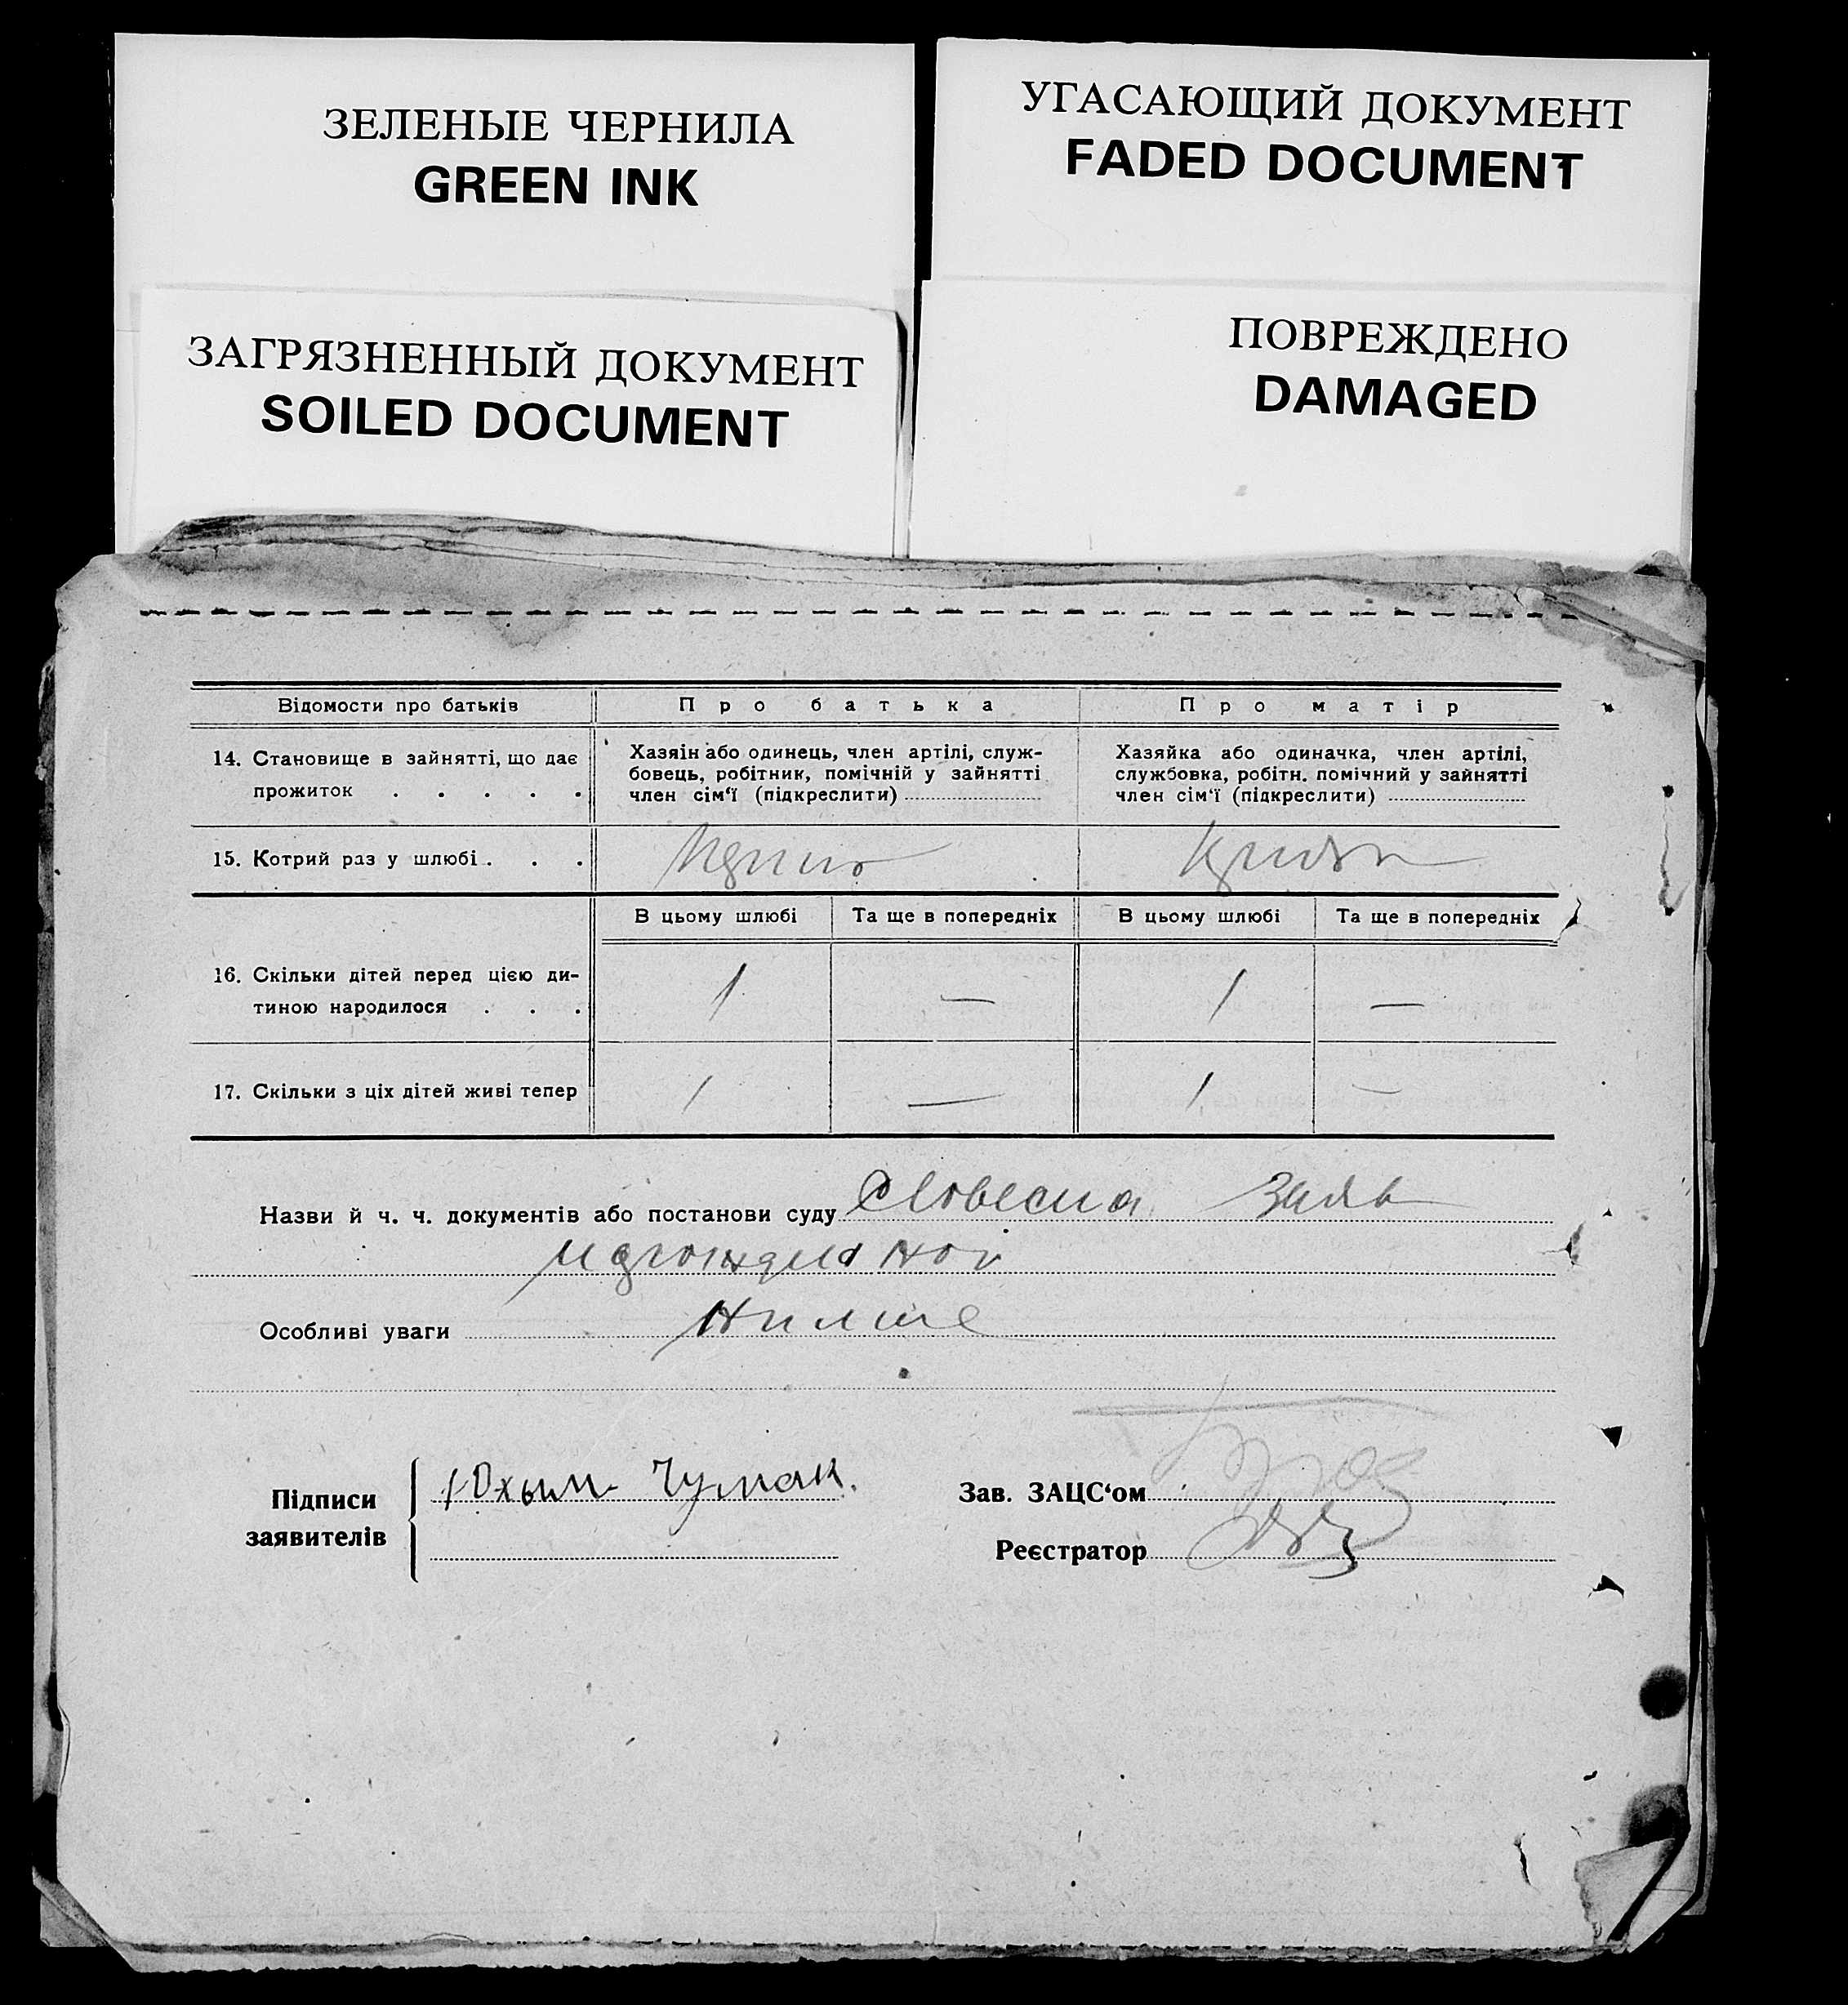 ЗЕЛЕНЫЕ ЧЕРНИЛА
GREEN INK
УГАСАЮЩИЙ ДОКУМЕНТ
FADED DOCUMENT
ЗАГРЯЗНЕННЫЙ ДОКУМЕНТ
SOILED DOCUMENT
ПОВРЕЖДЕНО
DAMAGED
Відомости про батьків
Про батька
Про матір
14. Становище в зайнятті, що дає
прожиток . . . . .
Хазяін або одинець, член артілі, служ-
бовець, робітник, помічній у зайнятті
член сім‘ї (підкреслити)
Хазяйка або одиначка, член артілі,
службовка, робітн. помічний у зайнятті
член сім‘ї (підкреслити)
15. Котрий раз у шлюбі . . .
В цьому шлюбі
Та ще в попередніх
В цьому шлюбі
Та ще в попередніх
16. Скільки дітей перед цією ди-
тиною народилося . . .
1 — 1 —
17. Скільки з ціх дітей живі тепер
1 — 1 —
Назви й ч. ч. документів або постанови суду Словесна Заяв
Особливі уваги
Підписи
заявителів
Юхым Чумак.
Зав. ЗАЦС‘ом
Реєстратор